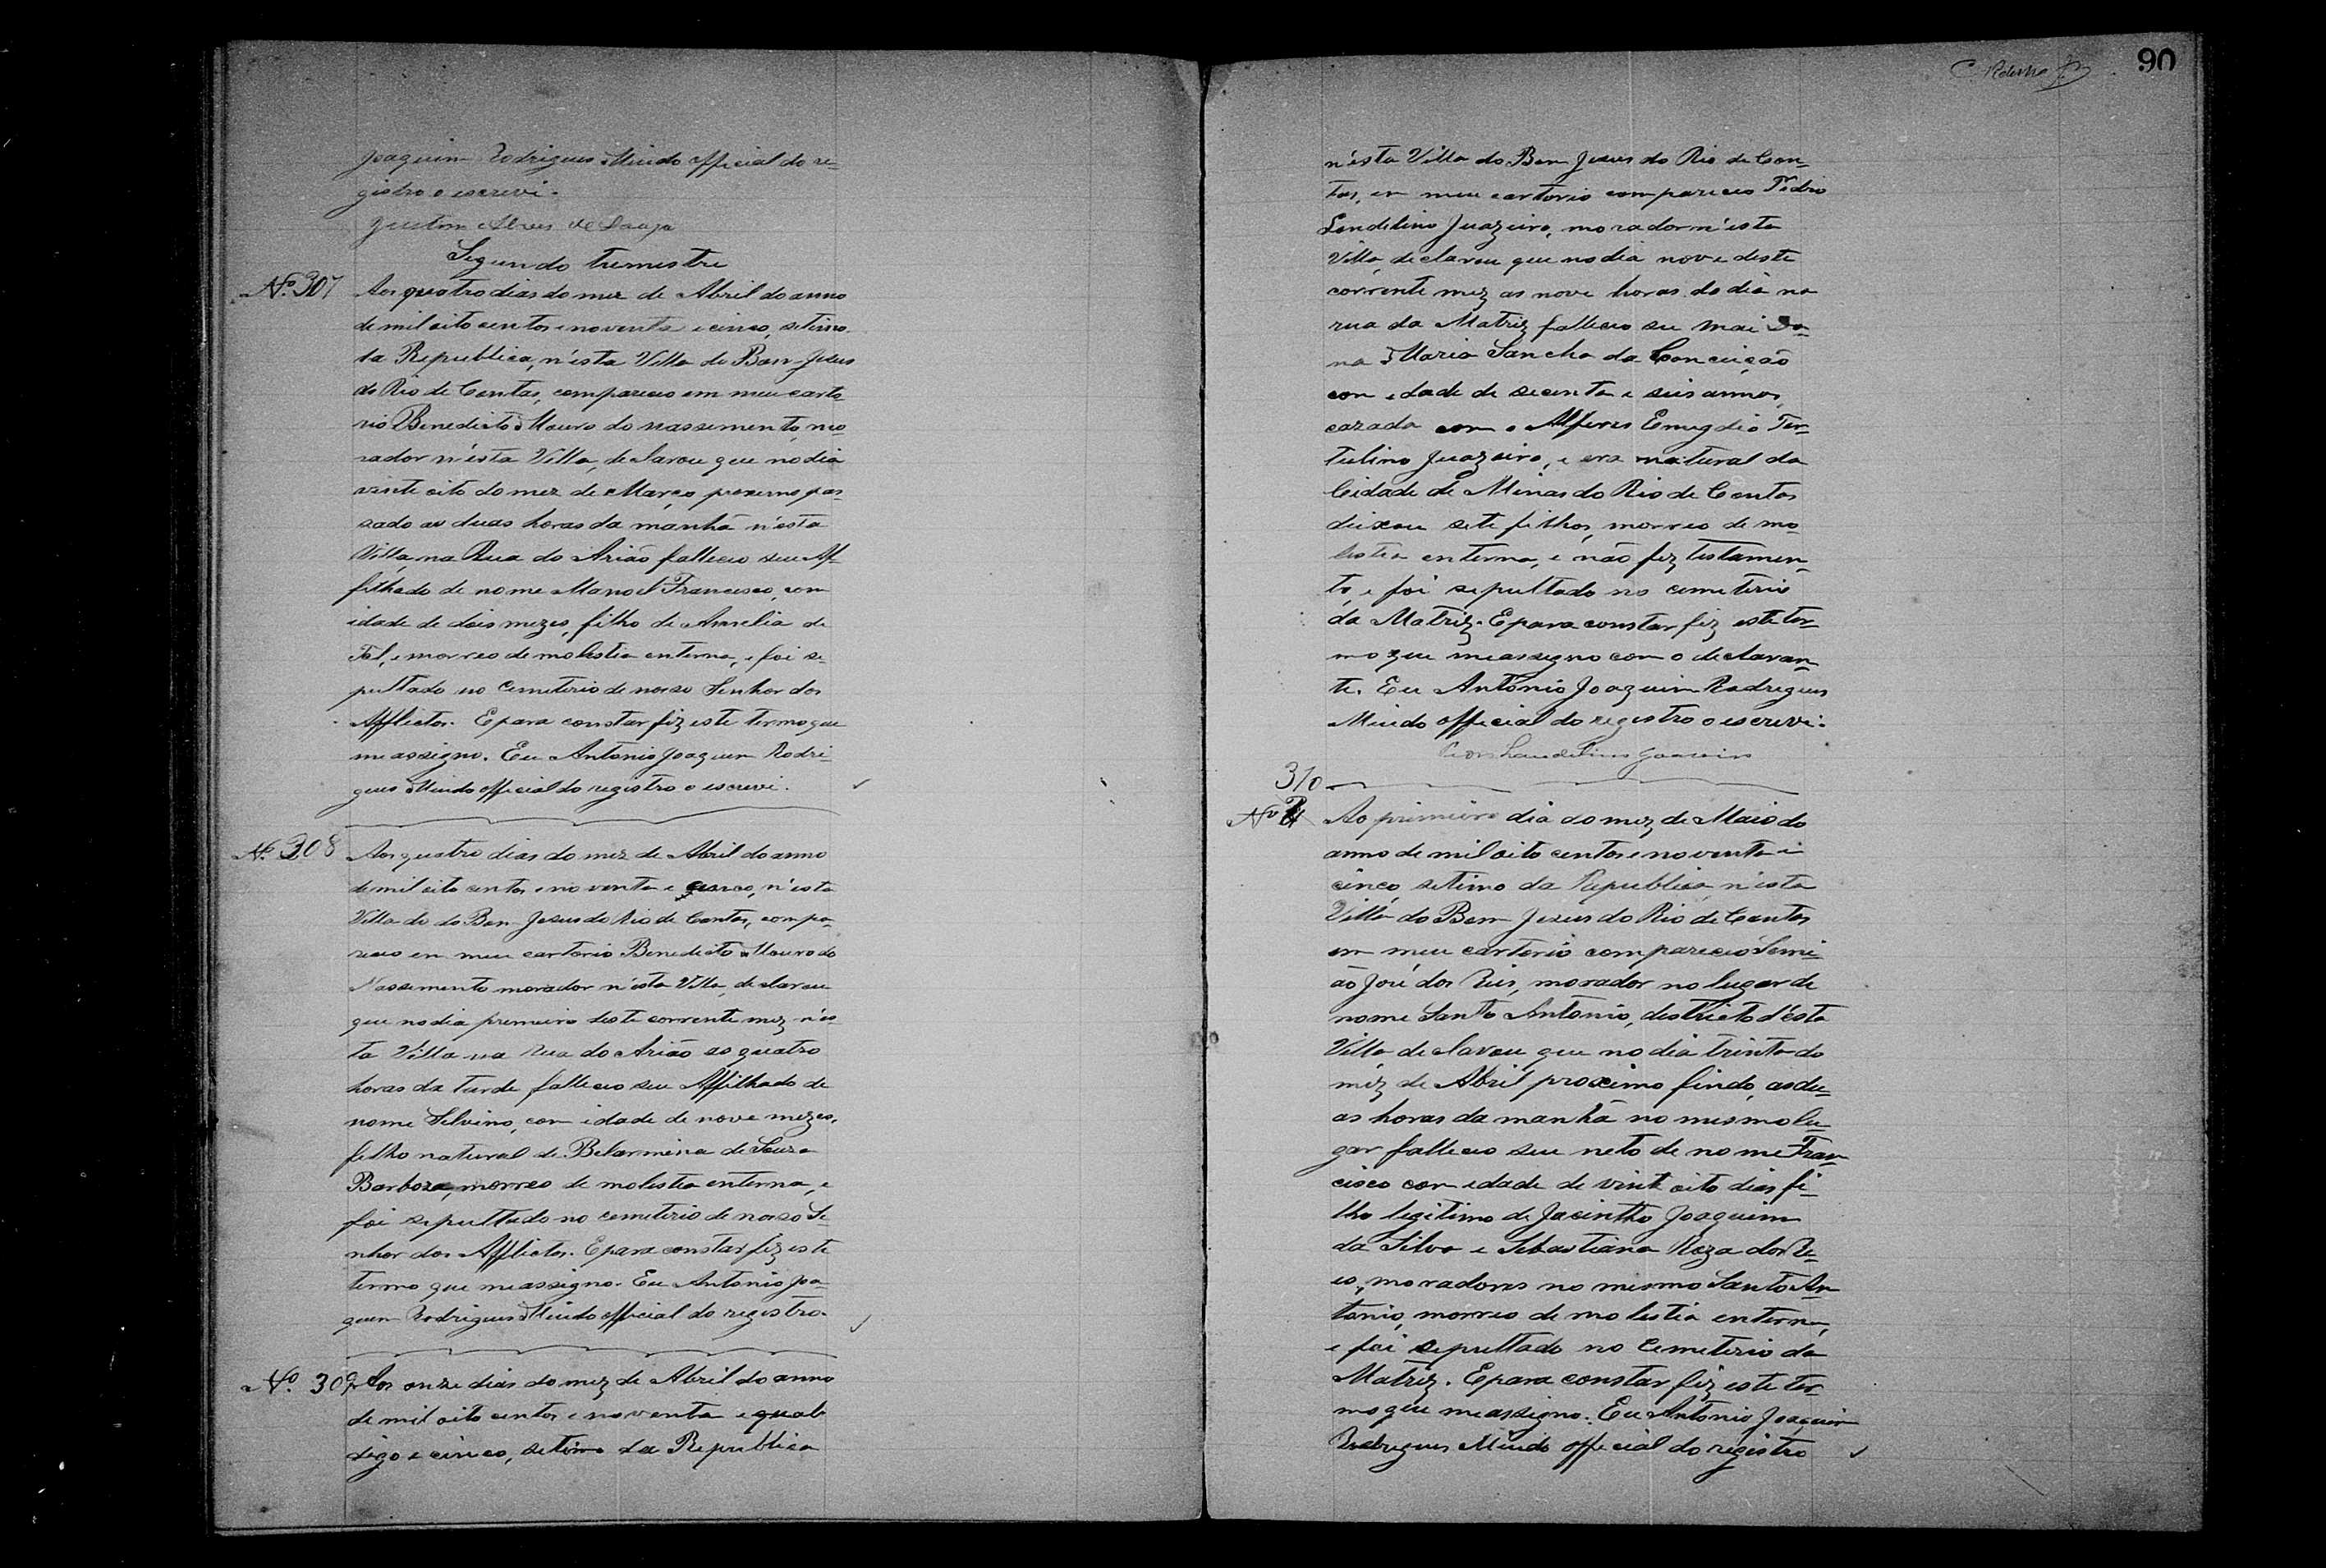 Joaquim Rodrigues Miudo official do re-
gistro o escrevi.
Alves de
Segundo tremestre
Nº 307 Aos quatro dias do mez de Abril do anno
de mil oito centos e noventa e cinco, setimo
da Republica, n'esta Villa do Bom Jesus
do Rio de Contas, compareceo em meu carto
rio Benedicto Mauro do nassemento, mo
rador n'esta Villa, declarou que no dia
vinte oito do mez de Março, proximo pas-
sado as duas horas da manhã n'esta
Villa, na Rua do Arião falleceo seu Af-
filhado de nome Manoel Francisco, com
idade de dois mezes, filho de Amelia de
Tal, e morreo de molestia enterna, e foi se-
pultado no Cemeterio de nosso Senhor dos
Afflictos. E para constar fiz este termo que
me assigno. Eu Antonio Joaquim Rodri-
gues Miudo official do registro o escrevi.
Nº 308 Aos quatro dias do mez de Abril do anno
de mil oito centos e no venta e cinco, n'esta
Villa do do Bom Jesus do Rio de Contas, compa-
receo em meu cartorio Benedicto Mauro do
Nassemento morador n'esta Villa, declarou
que no dia premeiro deste corrente mez n'es-
ta Villa na Rua do Arião as quatro
horas da tarde falleceo seu Affilhado de
nome Silvino, com idade de nove mezes,
filho natural de Belarmina de Souza
Barboza, morreo de molesta enterna, e
foi sepultado no cemeterio de nosso Se-
nhor dos Afflictos. E para constar fiz este
termo que me assigno. Eu Antonio Joa-
quem Rodrigues Miudo official do registro.
Nº. 309 Aos onze dias do mez de Abril do anno
de mil oito centos e noventa e quat
digo e cinco, setimo da Republica
90
n'esta Villa do Bom Jesus do Rio de Con-
tas, em meu cartorio compareceo Pedro
Landelino Juazeiro, morador n'esta
Villa, declarou que no dia nove deste
corrente mez as nove horas do dia na
rua da Matriz falleceo su mai Do-
na Maria Sancha da Conceição
com edade de secenta e seis annos,
cazada com o Alferes Emygdio Ter-
tulino Juazeiro, e era natural da
Cidade de Minas do Rio de Contas
deixou sete filhos, morreo de mo
lestia enterna, e não fez testamen-
to, e foi sepultado no cemeterio
da Matriz. E para constar fiz este ter-
mo que me assigno com o declaran-
te. Eu Antonio Joaquim Rodrigues
Miudo official do registro o escrevi.
Landelino Joazeiro
310
Nº Ao primeiro dia do mez de Maio do
anno de mil oito centos e noventa e
cinco setimo da Republica n'esta
Villa do Bom Jezus do Rio de Contas
em meu cartorio compareceo Semi-
ão José dos Reis, morador no lugar de
nome Santo Antonio, destricto d'esta
Villa declarou que no dia trinta do
mez de Abril proximo findo, as du-
as horas da manhã no mesmo lu-
gar falleceo seu neto de nome Fran-
cisco com edade de vinte oito dias fi-
lho legitimo de Jacintho Joaquim
da Silva e Sebastiana Roza dos Re-
is, moradores no mesmo Santo An
tonio, morreo de molestia enterna,
e foi sepultado no Cemeterio da
Matriz. E para constar fiz este ter-
mo que me assigno. Eu Antonio Joaquim
Rodrigues Miudo official do registro